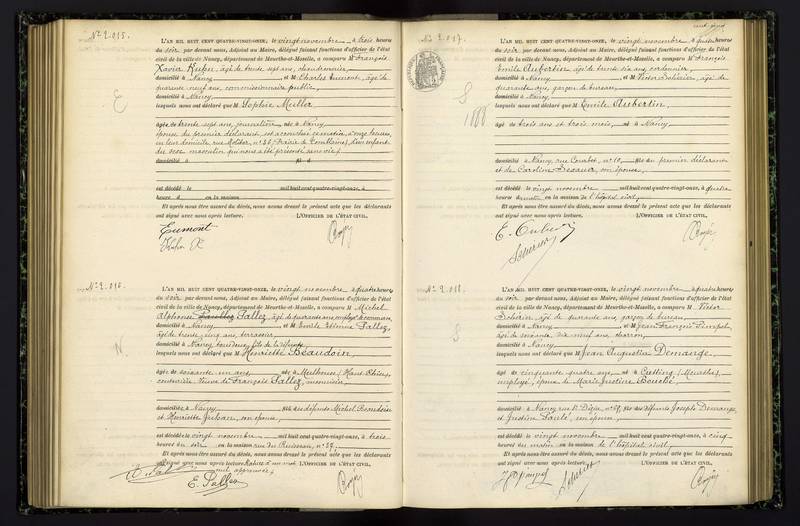 N° 2.015.
L'AN MIL HUIT CENT QUATRE-VINGT-ONZE, le vingt novembre à trois heures
du soir par devant nous, Adjoint au Maire, délégué faisant fonctions d'officier de l'état
civil de la ville de Nancy, département de Meurthe-et-Moselle, a comparu M. François
Xavier Kuhn, âgé de trente sept ans, chaudronnier
domicilié à Nancy et M Charles Eumont, âgé de
quarante neuf ans, commissionnaire public,
domicilié à Nancy
lesquels nous ont déclaré que M Sophie Muller
E
âgée de trente sept ans, journalière née à Nancy
épouse du premier déclarant, est accouchée ce matin, à onze heures,
en leur domicile, rue n° 36 d'un enfant
du sexe masculin qui nous a été présenté sans vie
domicilié à
est décédé le mil huit cent quatre-vingt-onze, à
heure d en la maison
Et après nous être assuré du décès, nous avons dressé le présent acte que les déclarants
ont signé avec nous après lecture. L'OFFICIER DE L'ÉTAT CIVIL,
Eumont
Kuhn
N° 2.016.
L'AN MIL HUIT CENT QUATRE-VINGT-ONZE, le vingt novembre à quatre heures
du soir par devant nous, Adjoint au Maire, délégué faisant fonctions d'officier de l'état
civil de la ville de Nancy, département de Meurthe-et-Moselle, a comparu M. Michel
Alphonse Pallez, âgé de quarante ans, employé de commerce
domicilié à Nancy et M Emile Etienne Pallez,
âgé de trente cinq ans, terrassier
domicilié à Nancy, tous deux fils de la défunte,
lesquels nous ont déclaré que M Henriette Beaudoin,
N
âgée de soixante un ans née à Mulhouse (Haut-Rhin),
couturière, veuve de François Pallez, menuisier
domiciliée à Nancy fille des défunts Michel Beaudoin
et Henriette son épouse,
est décédée le vingt novembre mil huit cent quatre-vingt-onze, à trois
heures du soir en la maison rue du Ruisseau, n° 37.
Et après nous être assuré du décès, nous avons dressé le présent acte que les déclarants
ont signé avec nous après lecture. L'OFFICIER DE L'ÉTAT CIVIL,
E. Pallez
N° 2.017.
L'AN MIL HUIT CENT QUATRE-VINGT-ONZE, le vingt novembre à quatre heures
du soir par devant nous, Adjoint au Maire, délégué faisant fonctions d'officier de l'état
civil de la ville de Nancy, département de Meurthe-et-Moselle, a comparu M. François
Emile Aubertin, âgé de trente six ans, cordonnier
domicilié à Nancy et M Victor Scheurin, âgé de
quarante ans, garçon de bureau,
domicilié à Nancy
lesquels nous ont déclaré que M Emile Aubertin,
S
1888
âgé de trois ans et trois mois, né à Nancy,
domicilié à Nancy, rue Courbet, n° 10, fils du premier déclarant
et de Caroline son épouse,
est décédé le vingt novembre mil huit cent quatre-vingt-onze, à quatre
heures du matin en la maison de l'hôpital civil,
Et après nous être assuré du décès, nous avons dressé le présent acte que les déclarants
ont signé avec nous après lecture. L'OFFICIER DE L'ÉTAT CIVIL,
N° 2.018.
L'AN MIL HUIT CENT QUATRE-VINGT-ONZE, le vingt novembre à quatre heures
du soir par devant nous, Adjoint au Maire, délégué faisant fonctions d'officier de l'état
civil de la ville de Nancy, département de Meurthe-et-Moselle, a comparu M. Victor
Scheurin, âgé de quarante ans, garçon de bureau,
domicilié à Nancy et M Jean François
âgé de soixante dix neuf ans, charron,
domicilié à Nancy
lesquels nous ont déclaré que M Jean Augustin Demange,
S
âgé de cinquante quatre ans, né à Cutting (Meurthe),
employé, époux de Marie Justine Bouché,
domicilié à Nancy, rue St Dizier, n° fils des défunts Joseph Demange
et Justine son épouse,
est décédé le vingt novembre mil huit cent quatre-vingt-onze, à cinq
heures du matin en la maison de l'hôpital civil,
Et après nous être assuré du décès, nous avons dressé le présent acte que les déclarants
ont signé avec nous après lecture. L'OFFICIER DE L'ÉTAT CIVIL,